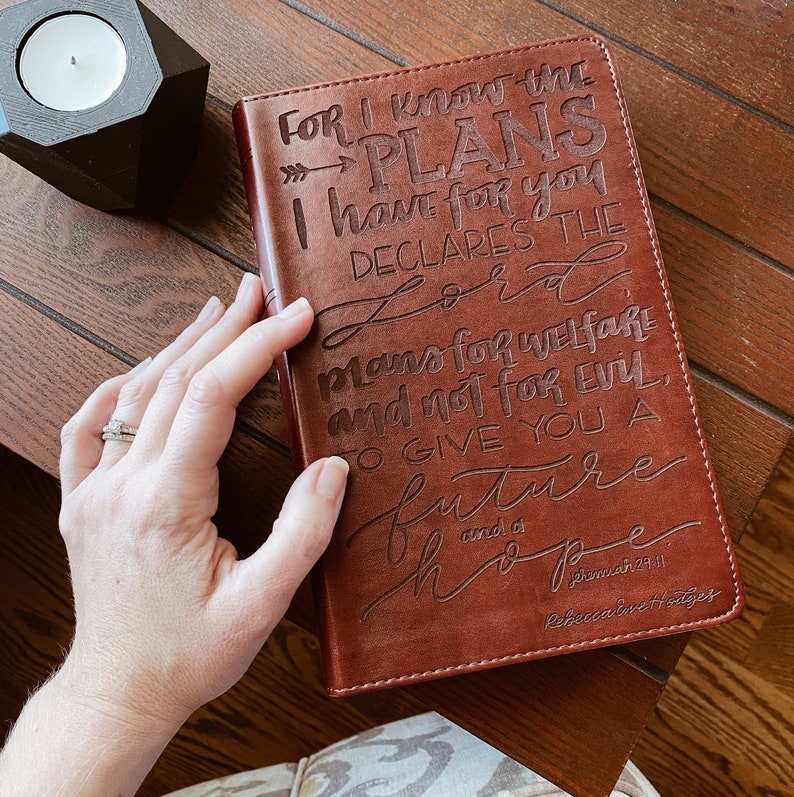 FOR I KNOW THE
PLANS
I have for you
DECLARES THE
Lord,
plans for welfare
and not for evil,
TO GIVE YOU A
future
and a
hope.
Jeremiah 29:11
Rebecca Eve Hodges